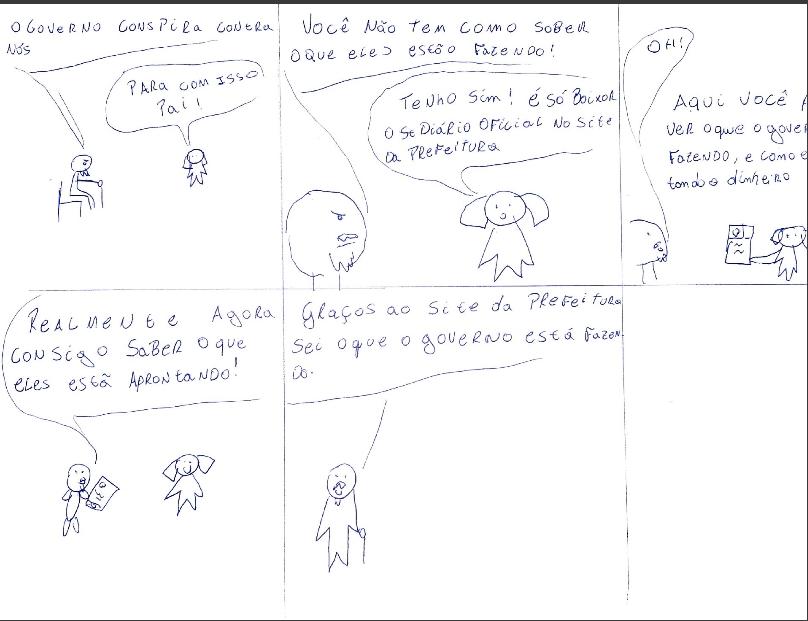 O GOVERNO CONSPIRA CONTRA
NÓS
PARA COM ISSO
Pai!
VOCÊ NÃO TEM COMO SABER
O QUE ELES ESTÃO FAZENDO!
TENHO SIM! É SÓ BAIXAR
O SE DIÁRIO OFICIAL NO SITE
DA PREFEITURA
OH!
AQUI VOCÊ
VER O QUE O GOVER
FAZENDO, E COMO E
TANDO O DINHEIRO
REALMENTE AGORA
CONSIGO SABER O QUE
ELES ESTÃ APRONTANDO!
GRAÇAS AO SITE DA PREFEITURA
SEI O QUE O GOVERNO ESTÁ FAZEN
DO.